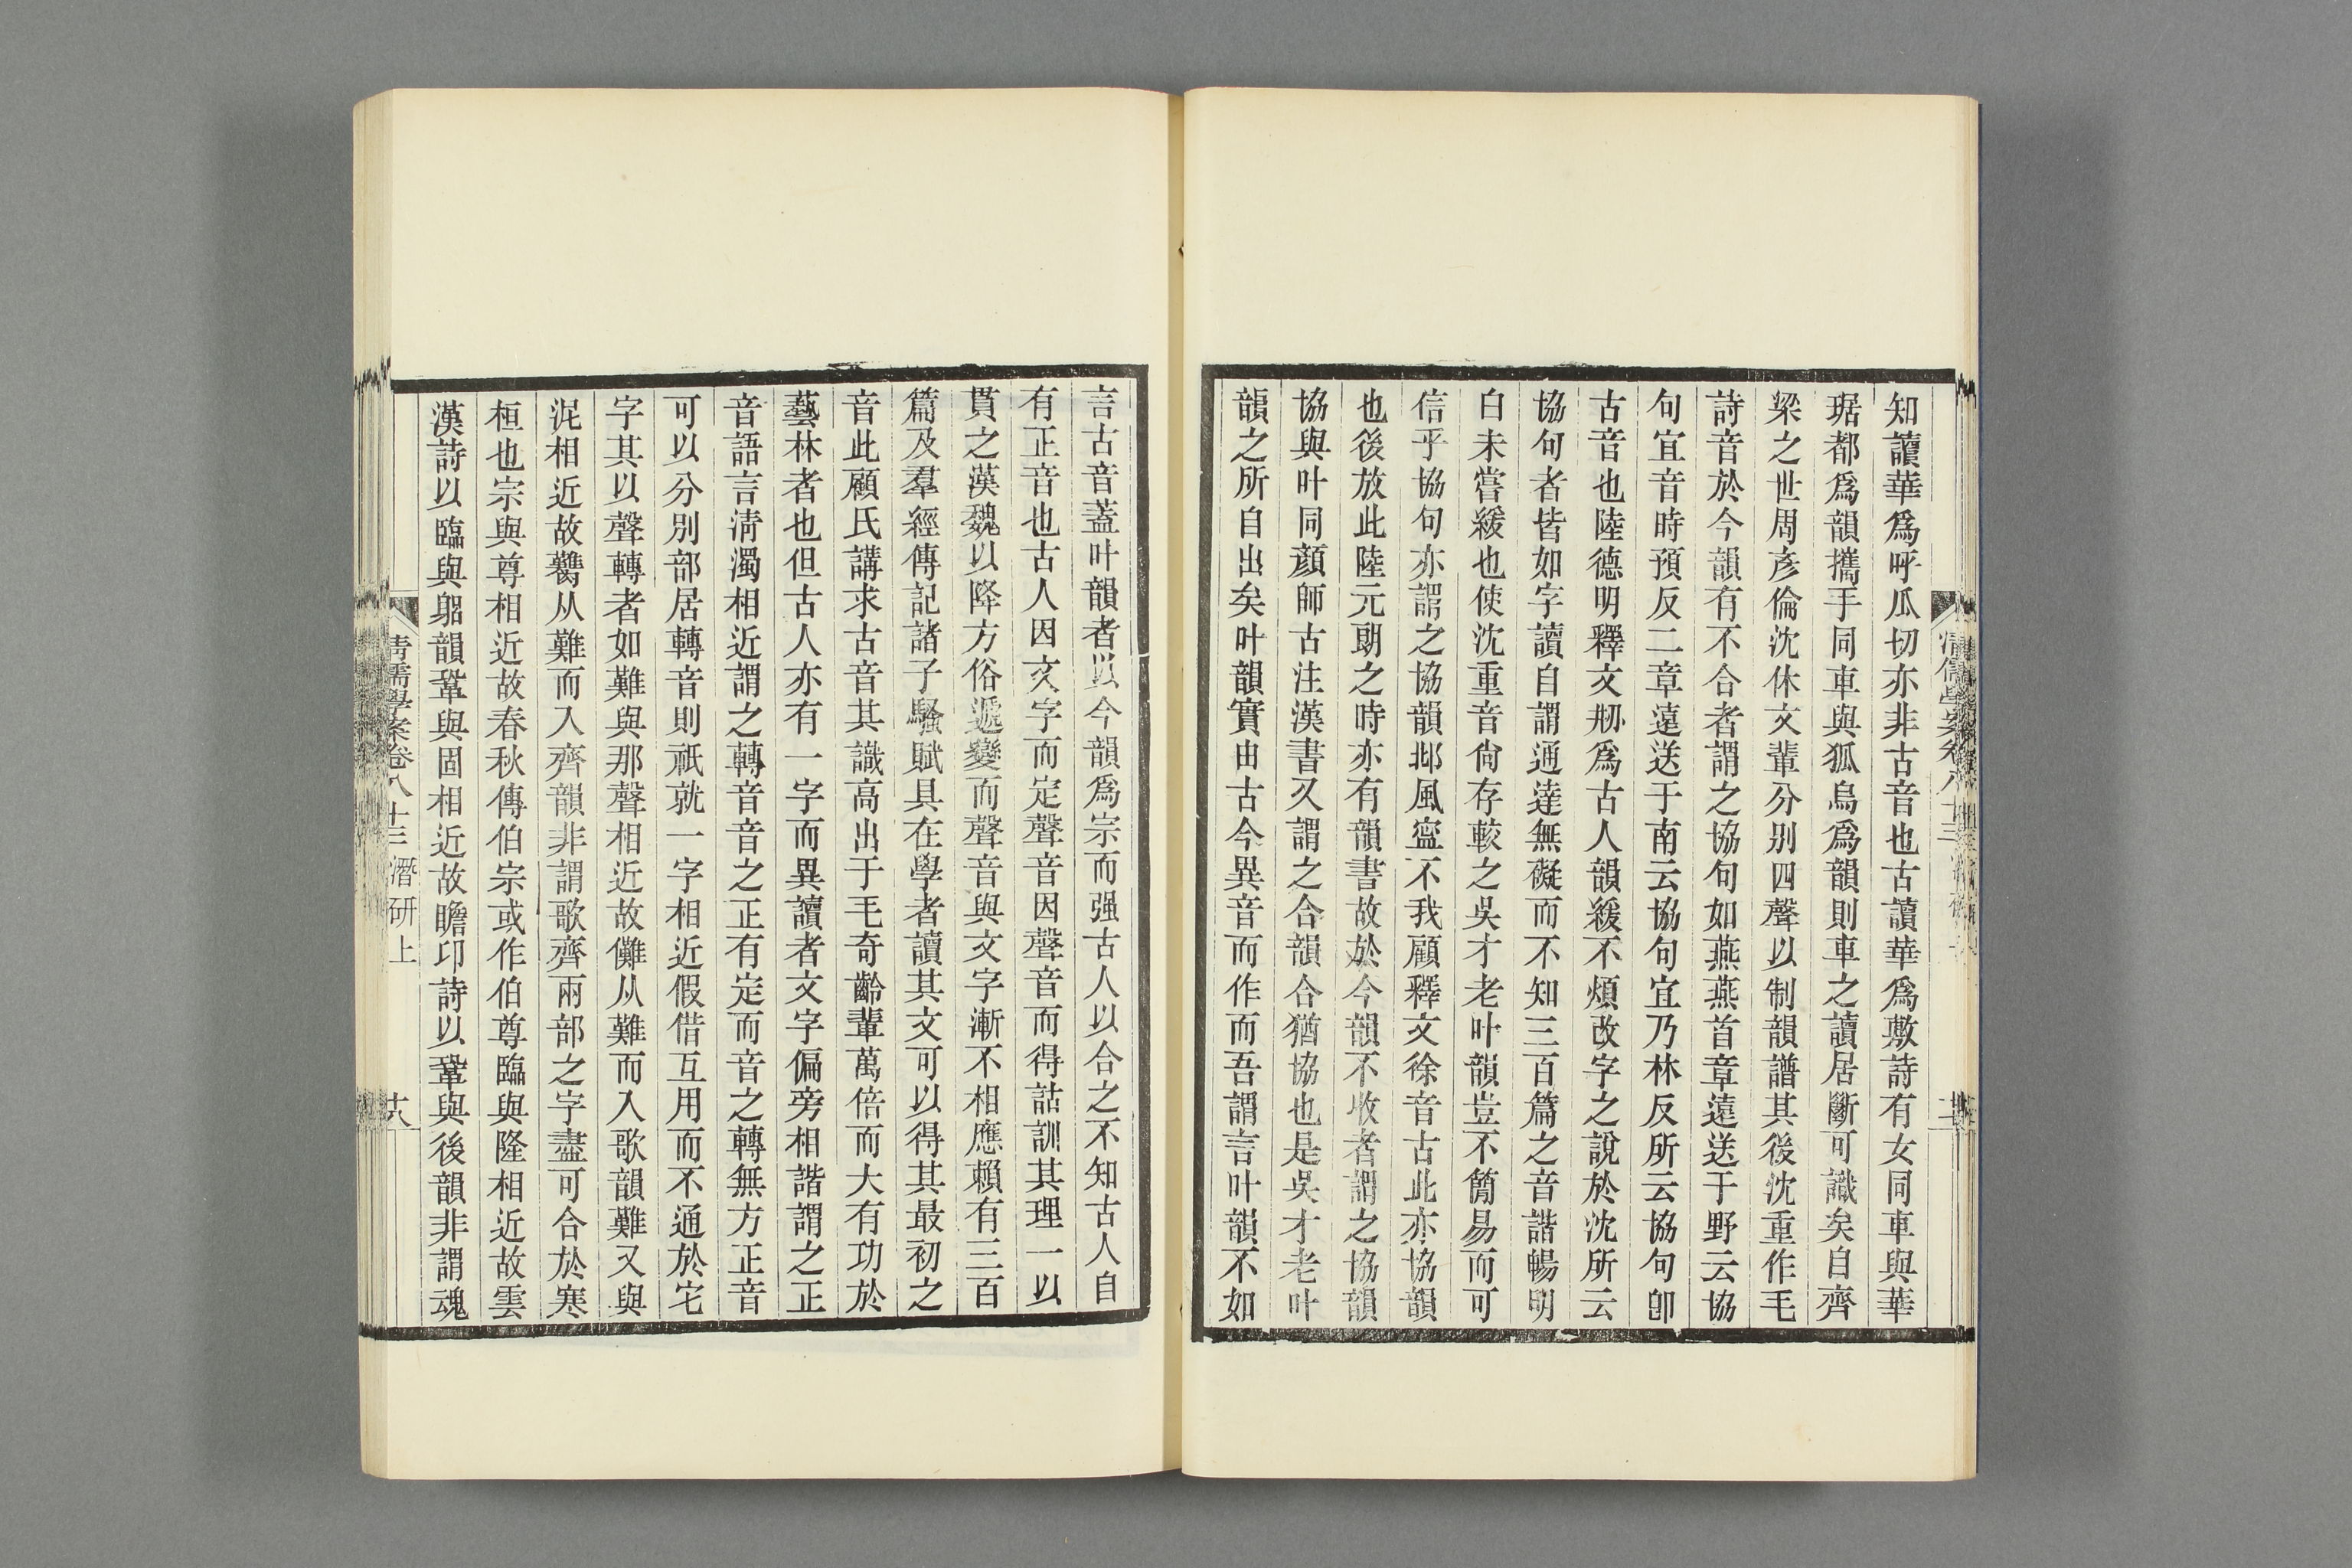 知讀華爲呼瓜切亦非古音也古讀華爲敷詩有女同車與華
琚都爲韻攜手同車與狐烏爲韻則車之讀居斷可識矣自齊
梁之世周彥倫沈休文輩分別四聲以制韻譜其後沈重作毛
詩音於今韻有不合者謂之協句如燕燕首章遠送于野云協
句宜音時預反二章遠送于南云協句宜乃林反所云協句卽
古音也陸德明釋文剏爲古人韻緩不煩改字之說於沈所云
協句者皆如字讀自謂通達無礙而不知三百篇之音諧暢明
白未嘗緩也使沈重音尙存較之吳才老叶韻豈不簡易而可
信乎協句亦謂之協韻邶風寍不我顧釋文徐音古此亦協韻
也後放此陸元朗之時亦有韻書故於今韻不收者謂之協韻
協與叶同顏師古注漢書又謂之合韻合猶協也是吳才老叶
韻之所自出矣叶韻實由古今異音而作而吾謂言叶韻不如
言古音蓋叶韻者以今韻爲宗而强古人以合之不知古人自
有正音也古人因文字而定聲音因聲音而得詁訓其理一以
貫之漢魏以降方俗遞變而聲音與文字漸不相應賴有三百
篇及羣經傳記諸子騷賦具在學者讀其文可以得其最初之
音此顧氏講求古音其識高出于毛奇齡輩萬倍而大有功於
藝林者也但古人亦有一字而異讀者文字偏旁相諧謂之正
音語言淸濁相近謂之轉音音之正有定而音之轉無方正音
可以分別部居轉音則祇就一字相近假借互用而不通於它
字其以聲轉者如難與那聲相近故儺从難而入歌韻難又與
泥相近故臡从難而入齊韻非謂歌齊兩部之字盡可合於寒
桓也宗與尊相近故春秋傳伯宗或作伯尊臨與隆相近故雲
漢詩以臨與躬韻鞏與固相近故瞻卬詩以鞏與後韻非謂魂
淸儒學案卷八十三 潛研上
十八